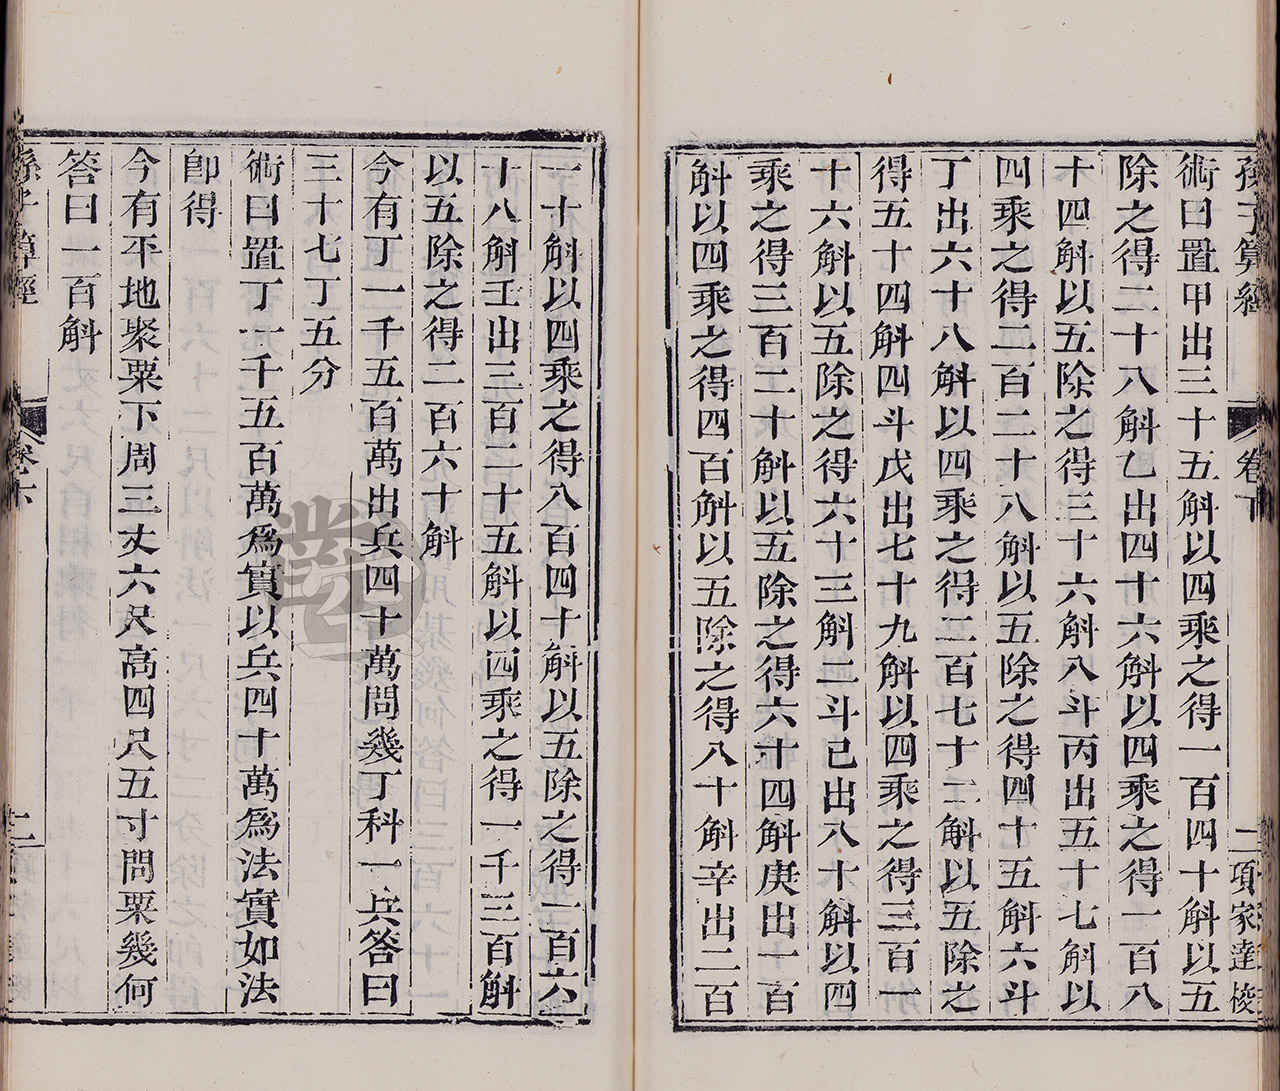 孫子算經 卷下 二 項家達校
術曰置甲出三十五斛以四乘之得一百四十斛以五
除之得二十八斛乙出四十六斛以四乘之得一百八
十四斛以五除之得三十六斛八斗丙出五十七斛以
四乘之得二百二十八斛以五除之得四十五斛六斗
丁出六十八斛以四乘之得二百七十二斛以五除之
得五十四斛四斗戊出七十九斛以四乘之得三百一
十六斛以五除之得六十三斛二斗己出八十斛以四
乘之得三百二十斛以五除之得六十四斛庚出一百
斛以四乘之得四百斛以五除之得八十斛辛出二百
一十斛以四乘之得八百四十斛以五除之得一百六
十八斛壬出三百二十五斛以四乘之得一千三百斛
以五除之得二百六十斛
今有丁一千五百萬出兵四十萬問幾丁科一兵答曰
三十七丁五分
術曰置丁一千五百萬爲實以兵四十萬爲法實如法
卽得
今有平地聚粟下周三丈六尺高四尺五寸問粟幾何
答曰一百斛
孫子算經 卷下